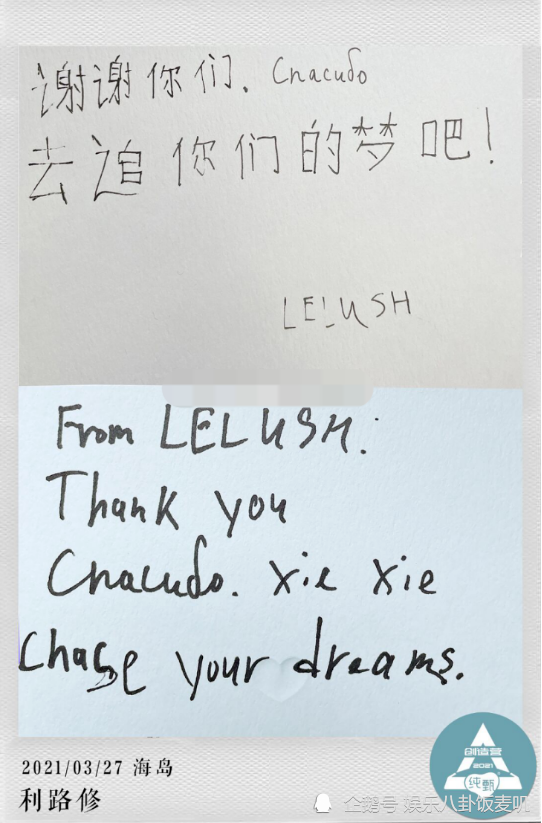 谢谢你们. Спасибо
去追你们的梦吧!
LELUSH
From LELUSH:
Thank you
Спасибо. Xie Xie
Chase your dreams.
2021/03/27 海岛
利路修
创造营
2021
纯甄
企鹅号 娱乐八卦饭麦呱